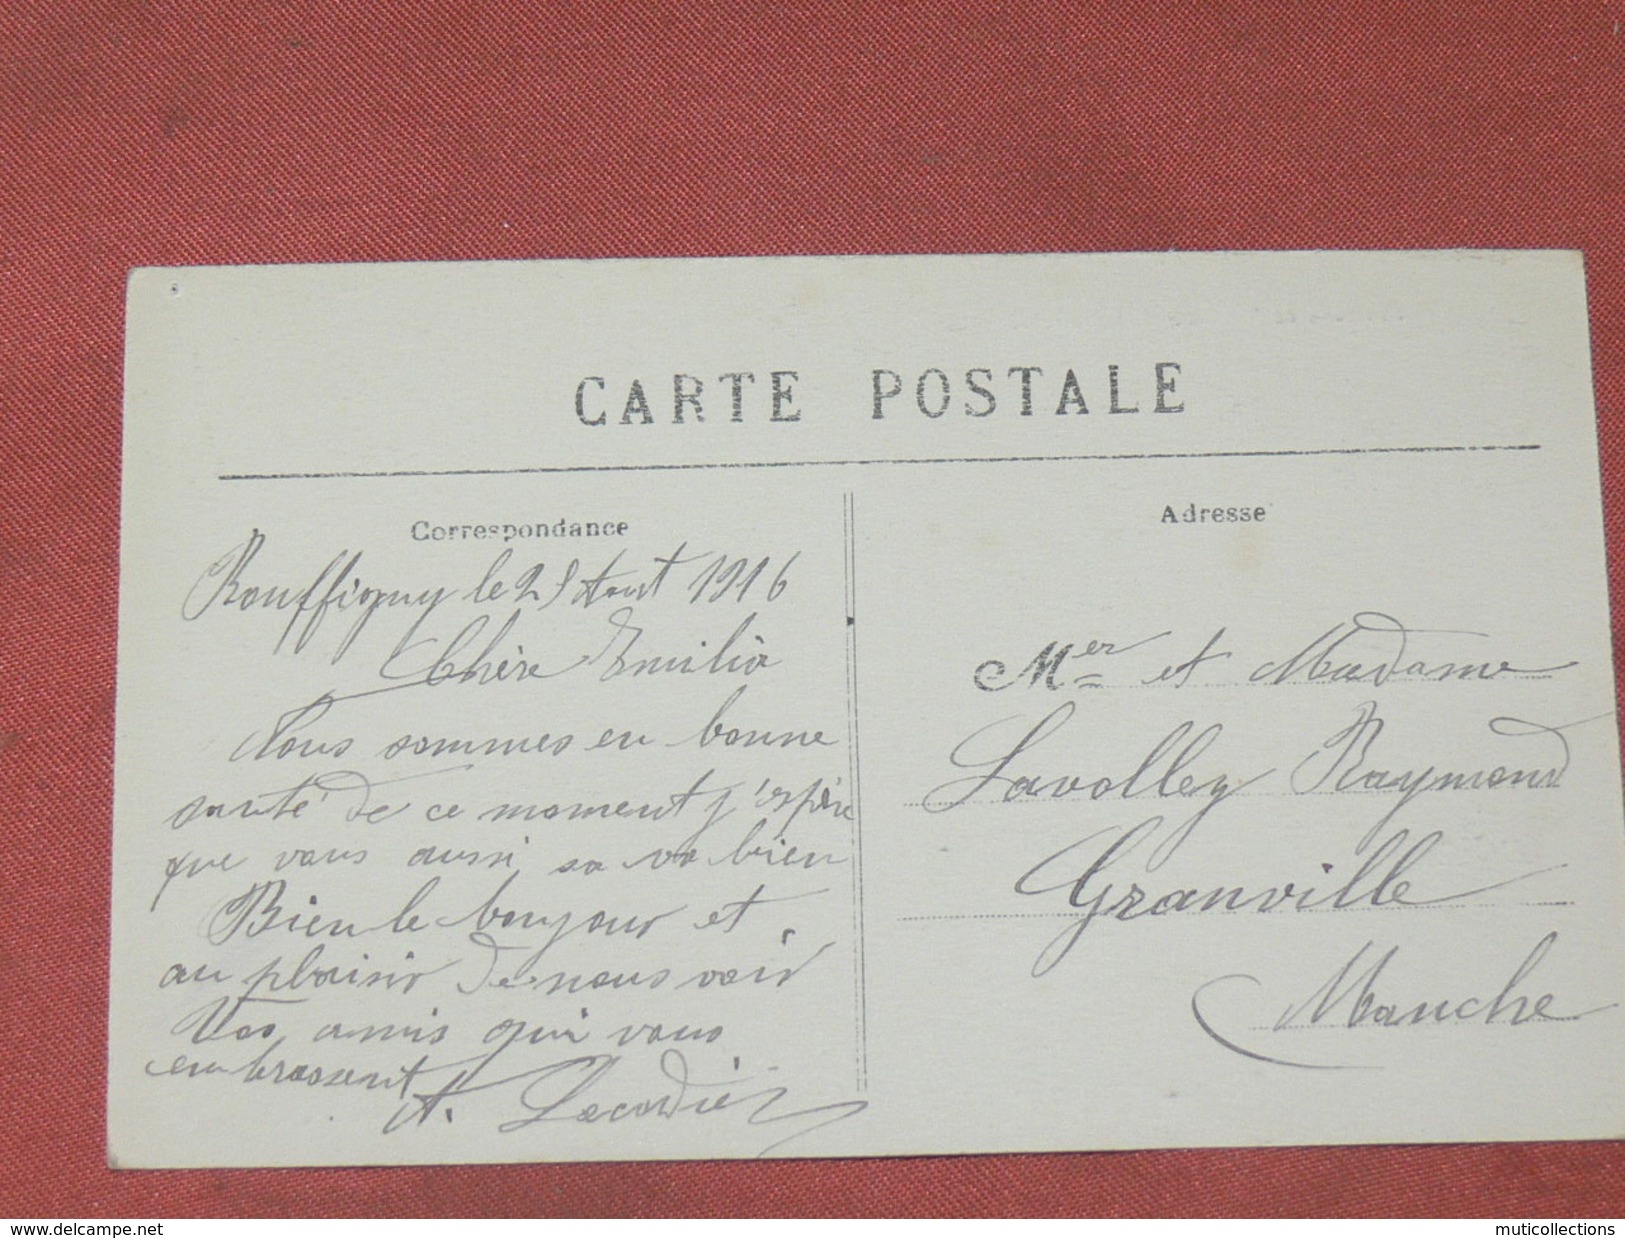 CARTE POSTALE
Correspondance
Rouffigny le 29 Aout 1916
Chère Emilia
Nous sommes en bonne
santé de ce moment j'espère
que vous aussi sa va bien
Bien le bonjour et
au plaisir de nous voir
Vos amis qui vous
embrassent
A. Lecordier
Adresse
Mer et Madame
Lavolley Raymond
Granville
Manche
www.delcampe.net
muticollections